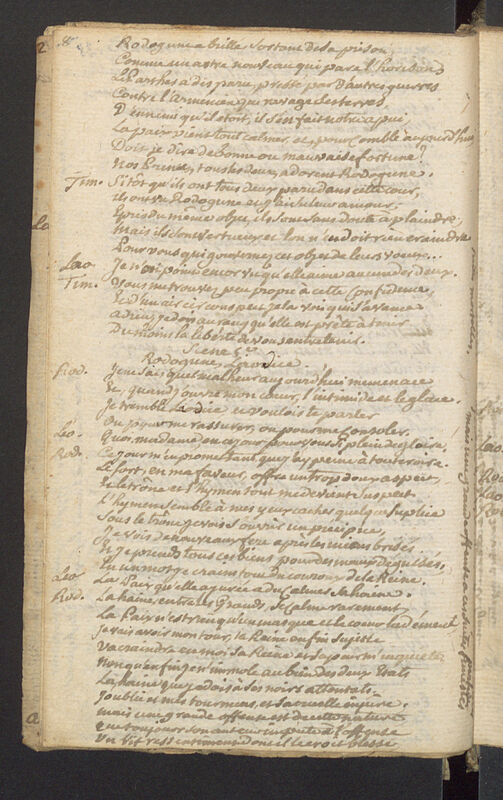 Rodogune a brillé, sortant de sa prison,
Comme un astre nouveau qui pare l'horison
Le Parthe a disparu, pressé par d'autres guerres
Contre l'Armenien qui ravage ses terres,
D'ennemi qu'il étoit, il s'en fait notre apui,
La paix vient tout calmer, et, pour comble aujourd'hui
Dois je dire de bonne ou mauvaise fortune?
Nos Princes, tous les deux, adorent Rodogune.
Tim. Sitôt qu'ils ont tous deux paru dans cette cour,
Ils ont vu Rodogune
Epris du même objet, ils sont sans doute à plaindre
Mais ils sont vertueux et l'on n'en doit rien craindre
Pour vous qui gouvernez cet objet de leurs voeux...
Lao Je n'ai point encor vu qu'elle aime aucun des deux.
Tim. Vous me trouvez peu propre à cette confidence,
Et d'un air circonspect je la vois qui s'avance
Adieu, je dois au rang qu'elle est prête à tenir
Du moins la liberté de vous entretenir.
Scene 5e
Rodogune, Laodice.
Rod. Je ne sais quel malheur aujourd'hui me menace
Et, quand j'ouvre mon coeur, l'intimide et le glace.
Je tremble, Laodice et voulois te parler
Ou pour me rassurer, ou pour me consoler.
Léo. Quoi, madame, en ce jour pour vous si plein de gloire,
Rod. Ce jour m'en promet tant que j'ai peine à tout croire.
Le sort, en ma faveur, offre un trop doux aspect,
Et le trône et l'hymen tout me devient suspect
L'hymen semble à mes yeux cacher quelque suplice
Sous le trône je vois s'ouvrir un precipice,
Je vois de nouveaux fers après les miens brisés
Et je prends tous ces biens pour des maux deguisés,
En un mot je crains tout du couroux de la Reine.
Leo La Paix qu'elle a jurée a du calmer sa haine.
Rod. La haine, entre les Grands, se calme rarement,
La Paix n'est rien qu'un masque et le coeur la dément
Je vais avoir mon tour, la Reine enfin sujette
Va craindre en moi sa Reine et sa jour m'inquiete
Non qu'enfin je n'immole au bien des deux Etats
La haine que je dois à ses noirs attentats.
J'oublie et mes tourmens, et sa cruelle injure.
Mais une grande offense est de cette nature
Que toujours son auteur impute à l'offensé
Un vif ressentiment dont il le croit blessé